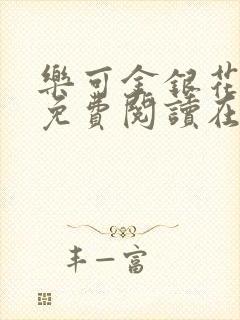 樂可金銀花
免費閱讀在
丰—富